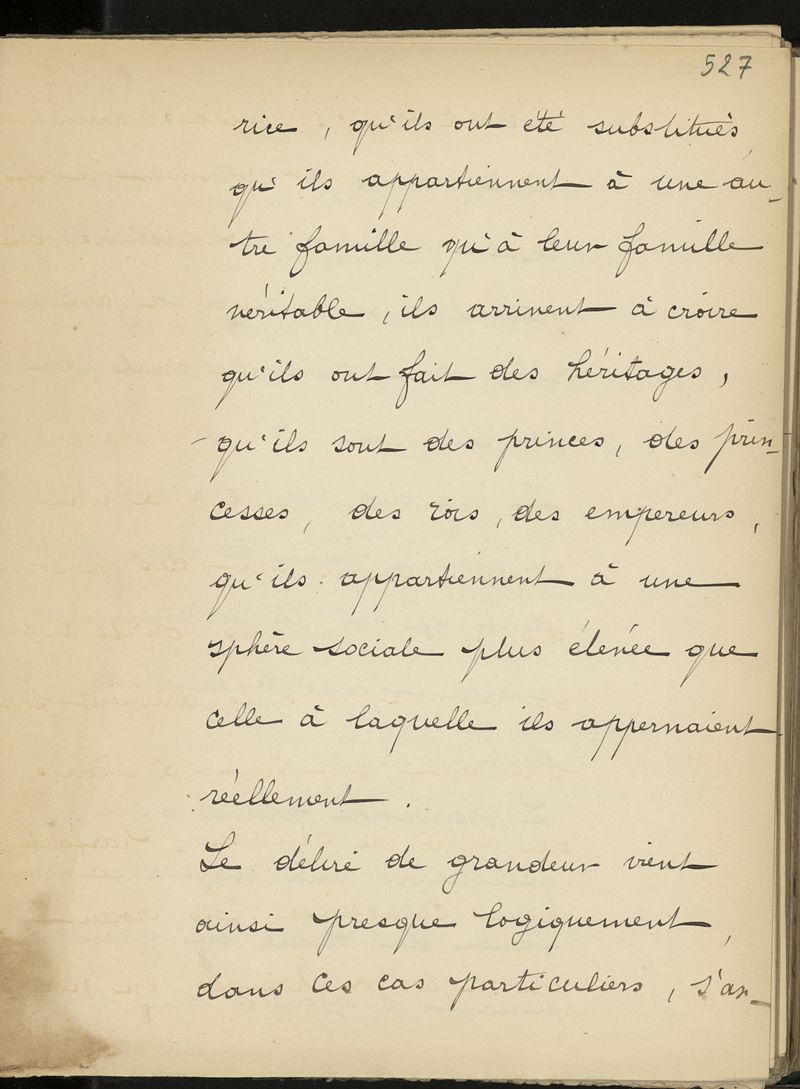 527
rice, qu'ils ont été substitués,
qu'ils appartiennent à une au-
tre famille qu'à leur famille
véritable, ils arrivent à croire
qu'ils ont fait des héritages,
- qu'ils sont des princes, des prin-
cesses, des rois, des empereurs,
qu'ils appartiennent à une
sphère sociale plus élevée que
celle à laquelle ils appernaient
réellement.
Le délire de grandeur vient
ainsi presque logiquement,
dans ces cas particuliers, s'as-